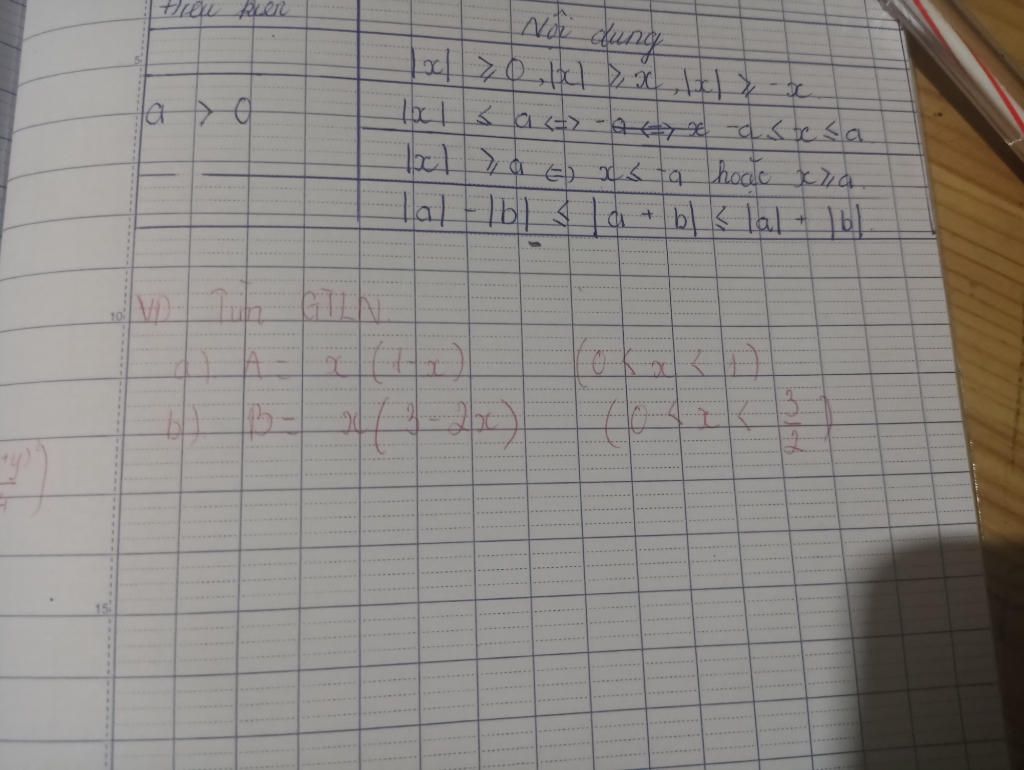 Điều kiện Nội dung
|x| ≥ 0, |x| ≥ x, |x| ≥ -x
a > 0 |x| ≤ a <=> -a <=> x -a ≤ x ≤ a
|x| ≥ a <=> x ≤ -a hoặc x ≥ a
|a| - |b| ≤ |a + b| ≤ |a| + |b|
10 VD Tìm GTLN
a) A = x (1-x) (0 < x < 1)
b) B = x (3 - 2x) (0 < x < 3/2)
15